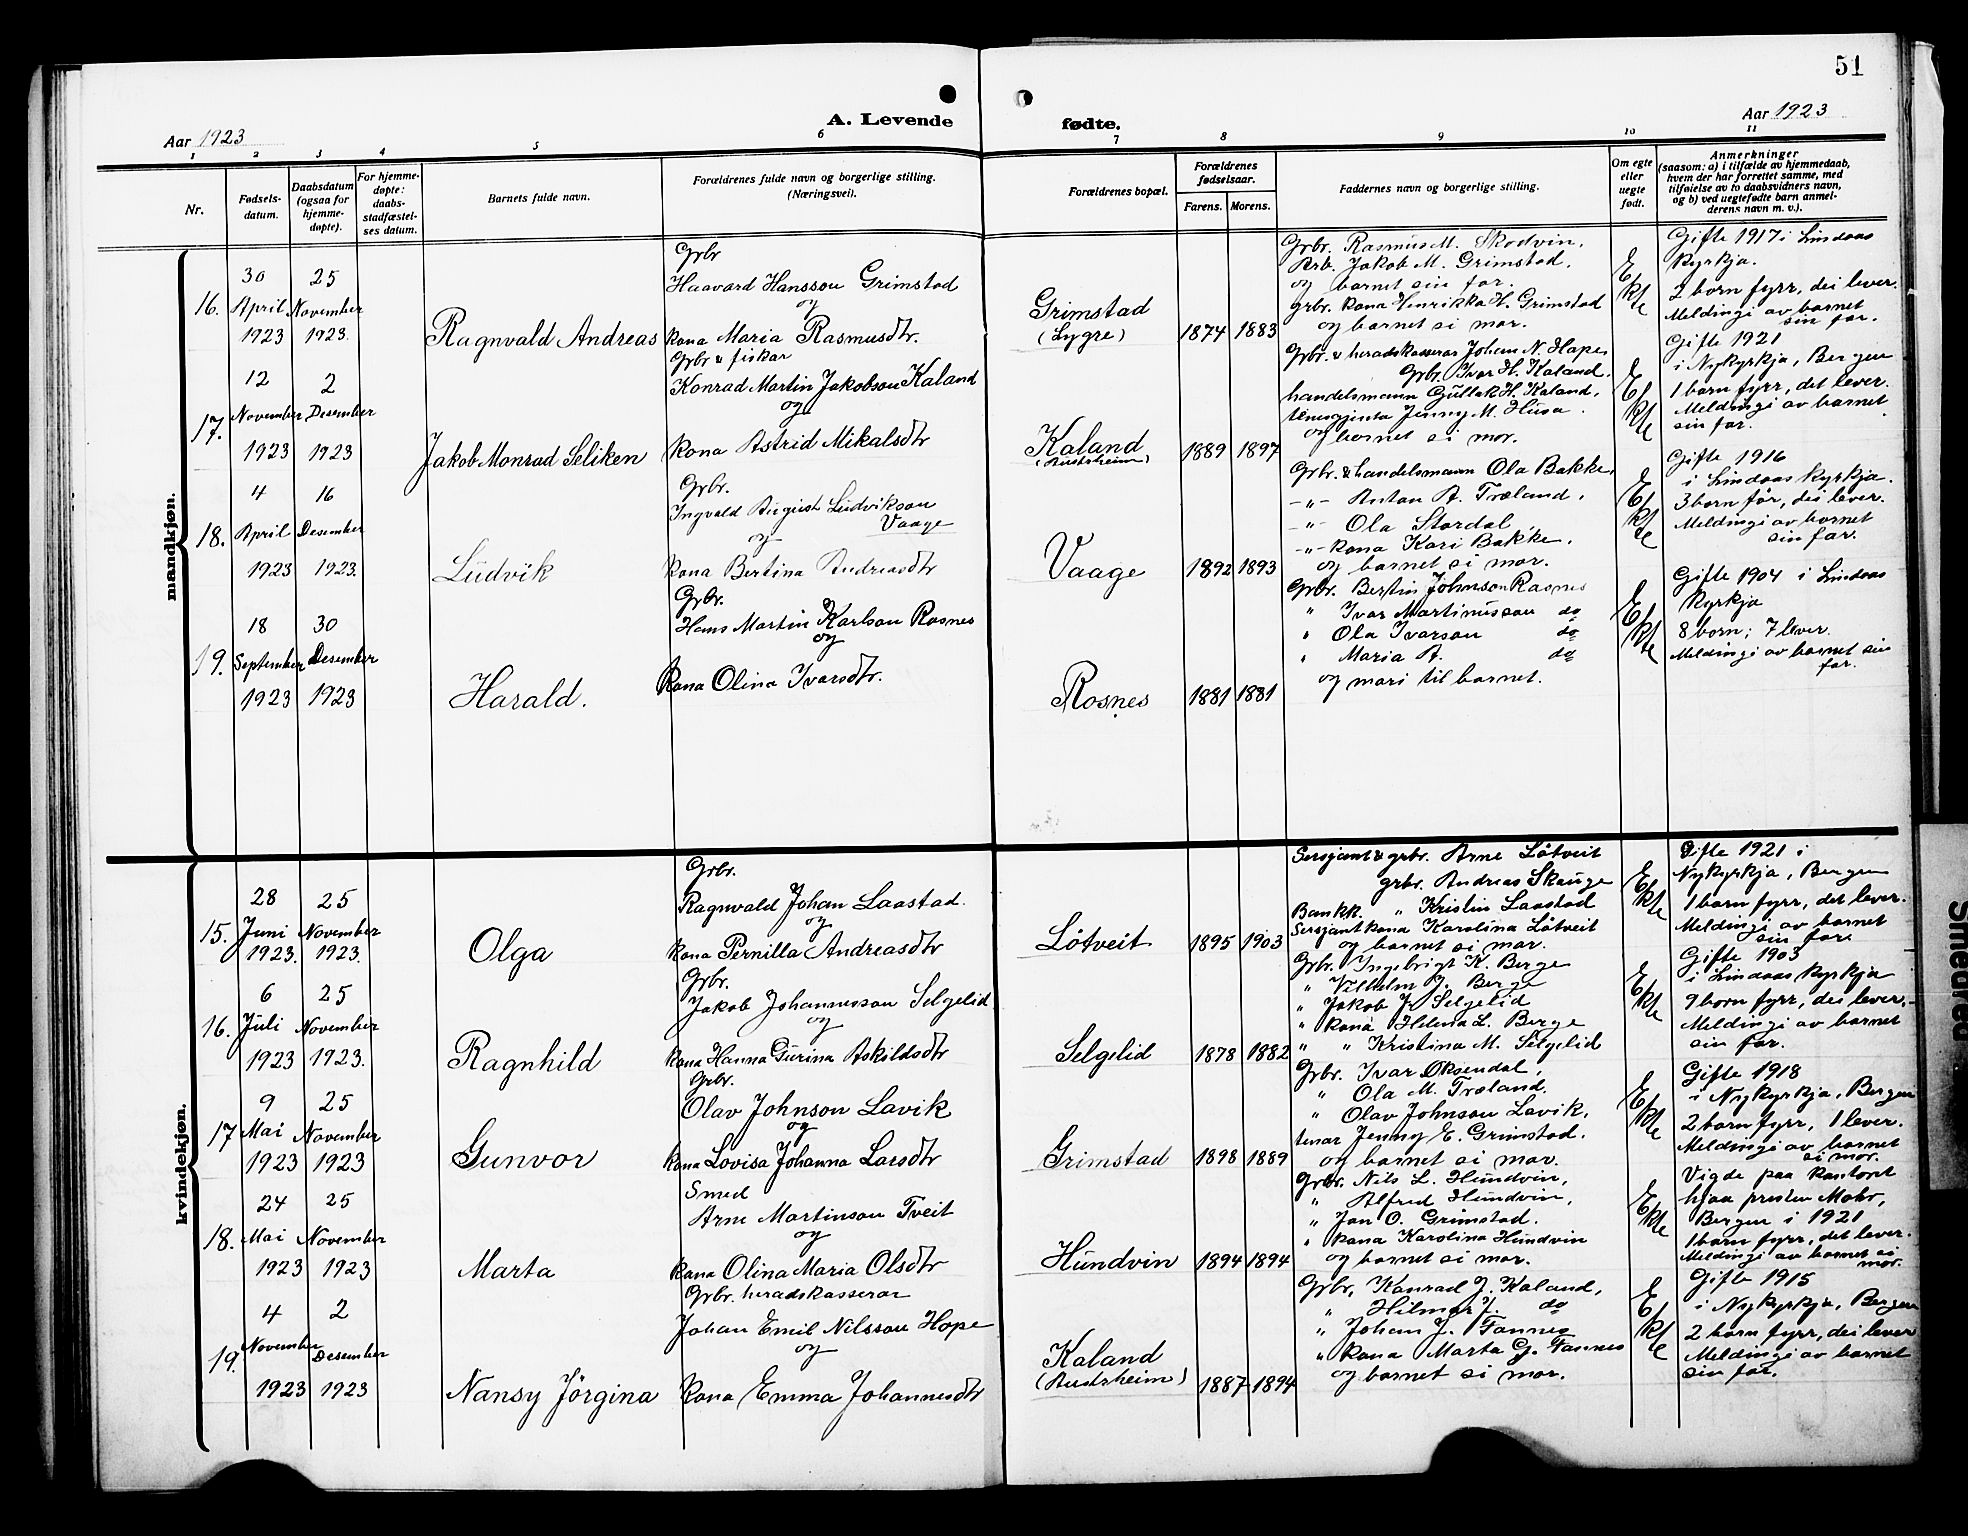 51
Aar 1923
A. Levende
fødte.
Aar 1923
1 2 3 4 5 6 7 8 9 10 11
Nr.
Fødsels-
datum.
Daabsdatum
(ogsaa for
hjemme-
døpte).
For hjemme-
døpte:
daabs-
stadfæstel-
ses datum.
Barnets fulde navn.
Forældrenes fulde navn og borgerlige stilling.
(Næringsvei).
Forældrenes bopæl.
Forældrenes
fødselsaar.
Farens. Morens.
Faddernes navn og borgerlige stilling.
Om egte
eller
uegte
født.
Anmerkninger
(saasom: a) i tilfælde av hjemmedaab,
hvem der har forrettet samme, med
tilføielse av to daabsvidners navn,
og b) ved uegtefødte barn anmel-
derens navn m. v.).
mandkjøn.
16.
30
April
1923
25
November
1923.
Ragnvald Andreas
Grbr
Haavard Hansson Grimstad
og
kona Maria Rasmusdtr.
Grimstad
(Lygre)
1874 1883
Grbr. Rasmus M. Skodvin,
Arb. Jakob M. Grimstad,
og barnet sin far.
grbr. kona Henrikka H. Grimstad
og barnet si mor.
Ekte
Gifte 1917 i Lindaas
kyrkja.
2 born fyrr, dei lever.
Meldingi av barnet
sin far.
17.
12
November
1923
2
Desember
1923
Jakob Monrad Seliken
Grbr & fiskar
Konrad Martin Jakobson Kaland
og
kona Astrid Mikalsdtr
Kaland
(Austrheim)
1889 1897
Grbr. & heradskasserar Johan N. Hope,
Grbr. Ivar H. Kaland,
handelsmann Gullak H. Kaland,
tenesgjenta Jenny M. Husa.
og barnet si mor.
Ekte
Gifte 1921
i Nykyrkja, Bergen
1 born fyrr, det lever.
Meldingi av barnet
sin far.
18.
4
April
1923
16
Desember
1923.
Ludvik
Grbr.
Ingvald August Ludvikson
Vaage
og
kona Bertina Andreasdtr
Vaage
1892 1893
Grbr. & handelsmann Ola Bakke,
-"- Anton A. Træland,
-"- Ola Stordal,
-"- kona Kari Bakke,
og barnet si mor.
Ekte
Gifte 1916
i Lindaas kyrkja.
3 born før, dei lever.
Meldingi av barnet
sin far.
19.
18
September
1923
30
Desember
1923
Harald.
Grbr.
Hans Martin Karlson Rosnes
og
kona Olina Ivarsdtr.
Rosnes
1881 1881
Grbr. Bertin Johnson Rosnes
" Ivar Martinusson do
" Ola Ivarson do
" Maria A. do
og mori til barnet.
Ekte
Gifte 1904 i Lindaas
kyrkja
8 born; 7 lever.
Meldingi av barnet sin
far.
kvindekjøn.
15.
28
Juni
1923.
25
November
1923.
Olga
Grbr.
Ragnvald Johan Laastad.
og
kona Pernilla Andreasdtr
Løtveit
1895 1903
Sersjant & grbr. Arne Løtveit
grbr. Andreas Skauge
Bankk. " Kristin Laastad
Sersjantkona Karolina Løtveit
og barnet si mor.
Ekte
Gifte 1921 i
Nykyrkja, Bergen
1 born fyrr, det lever.
Meldingi av barnet
sin far.
16.
6
Juli
1923
25
November
1923.
Ragnhild
Grbr.
Jakob Johannesson Selgelid
og
kona Hanna Gurina Askildsdtr
Selgelid
1878 1882
Grbr. Ingebrigt K. Berge
" Vilhelm J. Berge
" Jakob J. Selgelid
" kona Helena L. Berge
" " Kristina M. Selgelid
Ekte
Gifte 1903
i Lindaas kyrkja
9 born fyrr, dei lever.
Meldingi av barnet
sin far.
17
9
Mai
1923
25
November
1923
Gunvor
Grbr.
Olav Johnson Lavik
og
kona Lovisa Johanna Larsdtr
Grimstad
1898 1889
Grbr. Ivar Øksendal,
" Ola M. Træland.
" Olav Johnson Lavik,
tenar Jenny E. Grimstad.
og barnet si mor.
Ekte
Gifte 1918
i Nykyrkja, Bergen
2 born fyrr, 1 lever.
Meldingi av barnet
si mor.
18.
24
Mai
1923
25
November
1923
Marta
Smed
Arne Martinson Tveit
og
kona Olina Maria Olsdtr
Hundvin
1894 1894
Grbr. Nils L. Hundvin,
" Alfred Hundvin,
" Jan O. Grimstad.
" kona Karolina Hundvin
og barnet si mor.
Ekte
Vigde paa kontoret
hjaa presten Mohr,
Bergen i 1921
1 born fyrr, det lever.
Meldingi av barnet si
mor.
19.
4
November
1923
2
Desember
1923
Nansy Jörgina
Grbr. heradskasserar
Johan Emil Nilsson Hope
og
kona Emma Johannesdtr
Kaland
(Austrheim)
1887 1894
Grbr. Konrad J. Kaland,
" Hilmar J. do
" Johan J. Fannes
" kona Marta G. Fannes
og barnet si mor.
Ekte
Gifte 1915
i Nykyrkja, Bergen
2 born fyrr, dei lever
Meldingi av barnet
sin far.